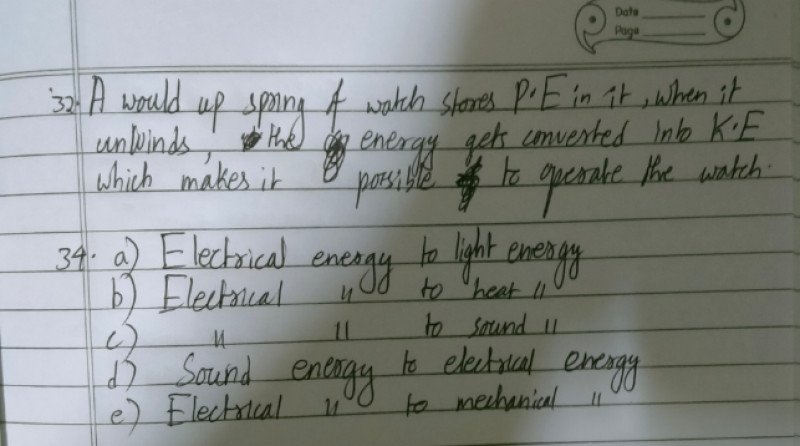 Date
Page
32. A would up spring of watch stores P.E in it, when it
unwinds, the energy gets converted into K.E
which makes it possible to operate the watch.
34. a) Electrical energy to light energy
b) Electrical " to heat "
c) " " to sound "
d) Sound energy to electrical energy
e) Electrical " to mechanical "